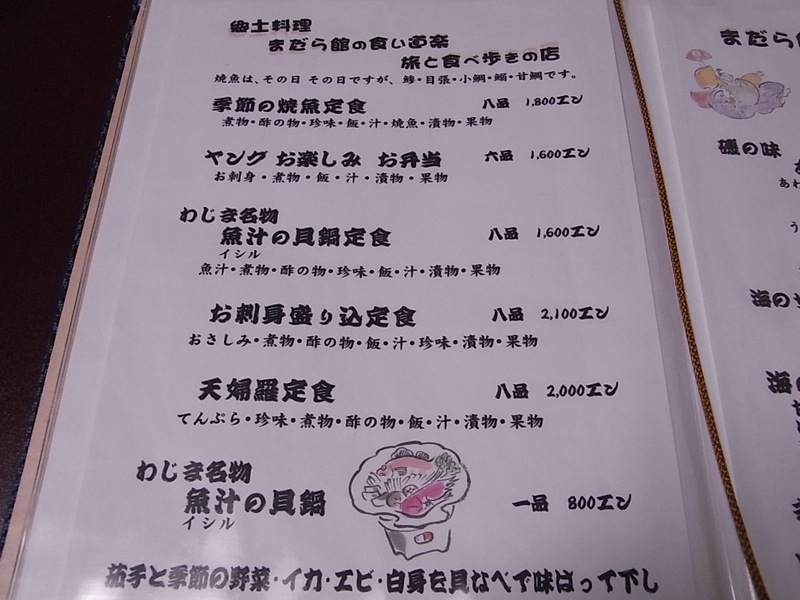 郷土料理
まだら館の食い道楽
旅と食べ歩きの店
焼魚は、その日 その日ですが、鯵・目張・小鯛・鰯・甘鯛です。
季節の焼魚定食 八品 1,800エン
煮物・酢の物・珍味・飯・汁・焼魚・漬物・果物
ヤング お楽しみ お弁当 六品 1,600エン
お刺身・煮物・飯・汁・漬物・果物
わじま名物
魚汁の貝鍋定食 八品 1,600エン
イシル
魚汁・煮物・酢の物・珍味・飯・汁・漬物・果物
お刺身盛り込定食 八品 2,100エン
おさしみ・煮物・酢の物・飯・汁・珍味・漬物・果物
天婦羅定食 八品 2,000エン
てんぷら・珍味・煮物・酢の物・飯・汁・漬物・果物
わじま名物
魚汁の貝鍋 一品 800エン
イシル
茄子と季節の野菜・イカ・エビ・白身を貝なべで味はって下し
まだら
磯の味
あわ
う
海の
海の